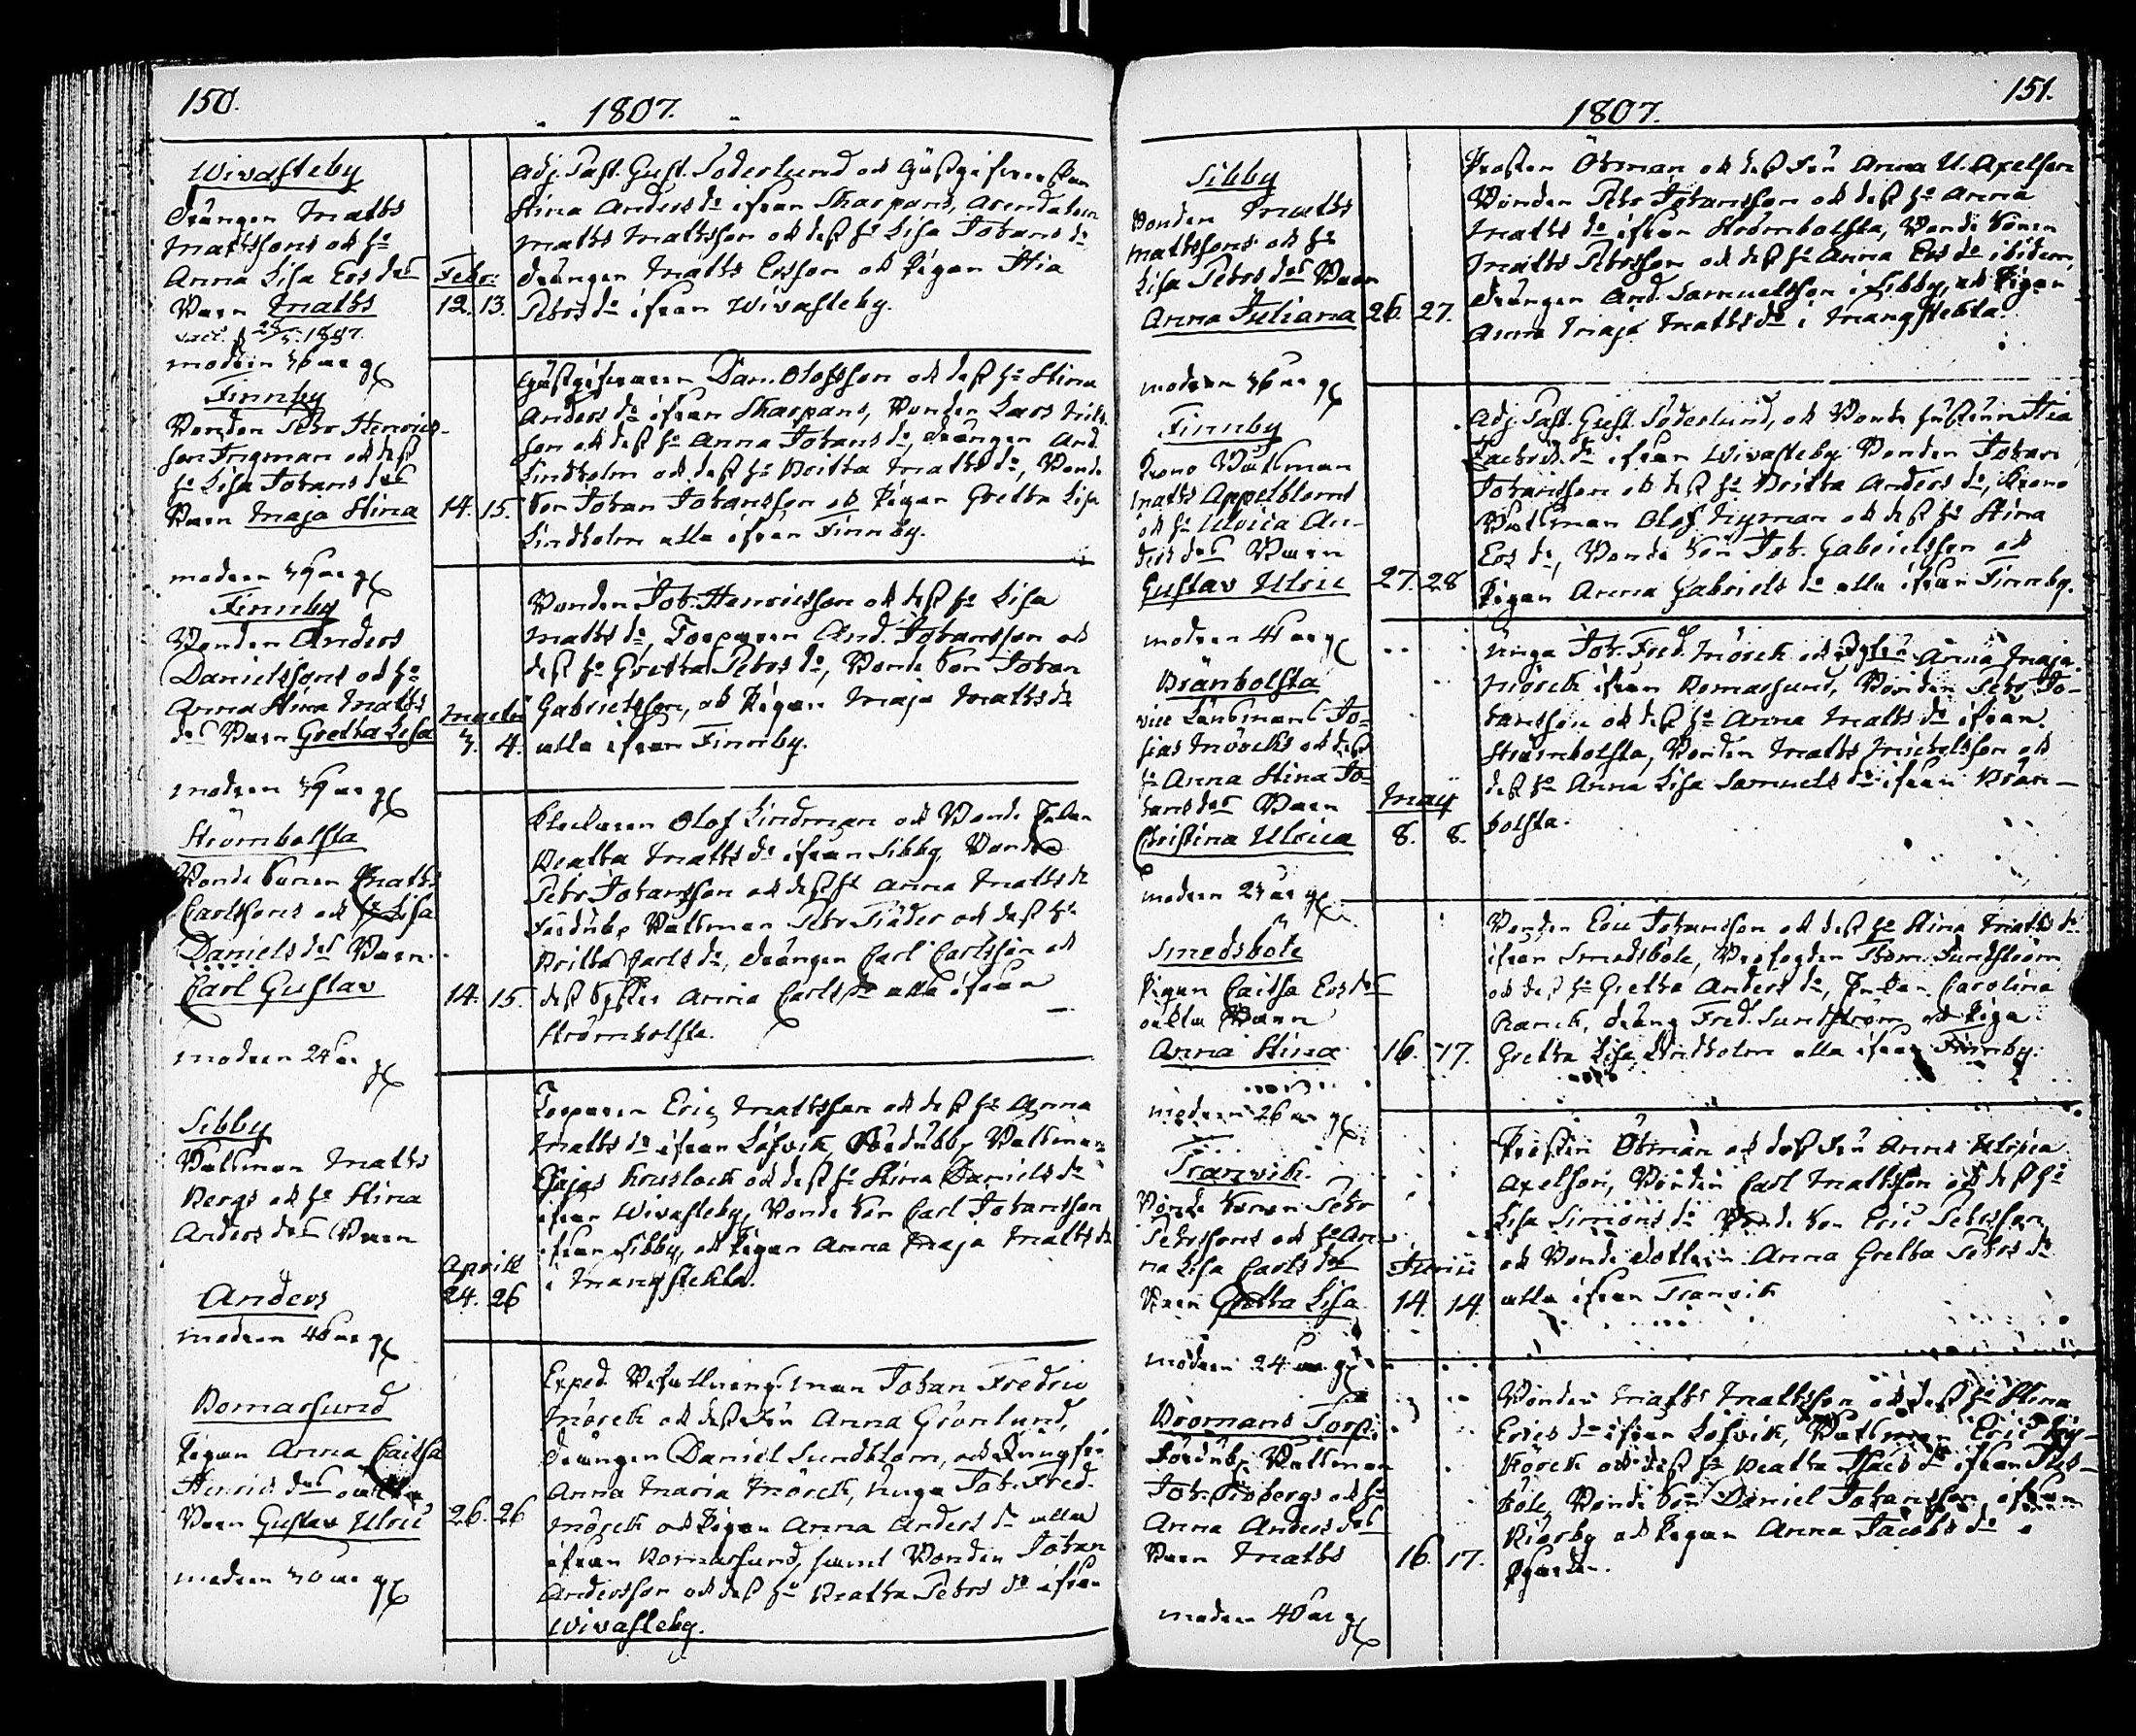 150.
1807.
Wivasteby
Drängen Maths
Mathssons och H:
Anna Lisa Ersdrs
Barn Maths
Febr:
12. 13.
modren 36 år gl
Adj. Past. Gust. Söderlund och Gästgifverskan
Stina Anders dr ifrån Skarpans, Arendatorn
Maths Mathsson och dess h: Lisa Johans dr
Drängen Maths Ersson och Pigan Stia
Pehrs dr ifrån Wivasteby.
Finnby
Bonden Pehr Henrics-
son Frigman och dess
h: Lisa Johans drs
Barn Maja Stina
14. 15.
modren 39 år gl
Gästgifvaren Dan. Olofsson och dess h: Stina
Anders dr ifrån Skarpans, Bonden Lars Nils
son och dess h: Anna Johans dr, Drängen And.
Lindholm och dess h: Britta Maths dr, Bonde
Son Johan Johansson och Pigan Gretha Lisa
Lindholm alla ifrån Finnby.
Finnby
Bonden Anders
Danielssons och h:
Anna Stina Maths
drs Barn Gretha Lisa
Martii
3. 4.
modren 39 år gl
Bonden Joh. Henricsson och dess h: Lisa
Maths dr, Torparen And. Johansson och
dess h: Gretha Pehrs dr, Bonde Son Johan
Gabrielsson, och Pigan Maja Maths dr
alla ifrån Finnby.
Strömbolsta
Bonde Sonen Maths
Carlssons och h: Lisa
Daniels drs Barn
Carl Gustav
14. 15.
modren 24 år gl
Klockaren Olof Lindman och Bonde Enkan
Beatha Maths dr ifrån Sibby, Bonden
Pehr Johansson och dess h: Anna Maths dr
Båtsman Pehr Fiäder och dess h:
Britta Carls dr, Drängen Carl Carlsson och
dess Syster Anna Carls dr alla ifrån
Strömbolsta.
Sibby
Båtsman Maths
Bergs och h: Stina
Anders drs Barn
Anders
Aprill
24. 26
modren 40 år gl
Torparen Eric Mathsson och dess h: Anna
Maths dr ifrån Löfvik, Båtsman
Esaias och dess h: Stina Daniels dr
ifrån Wivasteby, Bonde Son Carl Johansson
ifrån Sibby, och Pigan Anna Maja Maths dr
i Mangstekta.
Bomarsund
Pigan Anna Caisa
Henrics drs oäkta
Barn Gustav Ulric
26. 26
modren 30 år gl
Exped. Befallningsman Johan Fredric
Mörck och dess Fru Anna Grönlund,
Drängen Daniel Sundblom, och Jungfru
Anna Maria Mörck, unga Joh. Fred.
Mörck och Pigan Anna Anders dr alla
ifrån Bomarsund, samt Bonden Johan
Andersson och dess h: Beatha Pehrs dr ifrån
Wivasteby.
151.
1807.
Sibby
Bonden Maths
Mathssons och h:
Lisa Pehrs drs Barn
Anna Juliana
26. 27.
modren 36 år gl
Prosten Öhman och dess Fru Anna U. Axelson
Bonden Pehr Johansson och dess h: Anna
Maths dr ifrån Strömbolsta, Bonde Sonen
Maths Pehrsson och dess h: Anna Ers dr ibidem,
Drängen And. Samuelsson i Sibby, och Pigan
Anna Maja Maths dr i Mangstekta.
Finnby
Krono Båtsman
Maths Appelbloms
och h: Ulrica An-
ders drs Barn
Gustav Ulric
27. 28
modren 41 år gl
Adj. Past. Gust. Söderlund, och Bonde hustrun Stia
Zachris dr ifrån Wivasteby, Bonden Johan
Johansson och dess h: Britta Anders dr, Krono
Båtsman Olof Nyman och dess h: Stina
Ers dr, Bonde Son Joh. Gabrielsson och
Pigan Anna Gabriels dr alla ifrån Finnby.
Bränbolsta
vice Länsmans Jo-
sias Mörcks och dess
h: Anna Stina Jo-
hans drs Barn
Christina Ulrica
May
8. 8.
modren 23 år gl
Unga Joh. Fred. Mörck och Anna Maja
Mörck ifrån Bomarsund, Bonden Pehr Jo-
hansson och dess h: Anna Maths dr ifrån
Strömbolsta, Bonden Maths Michelsson och
dess h: Anna Lisa Samuels dr ifrån Brän-
bolsta.
Smedsböle
Pigan Caisa Ers drs
oäkta Barn
Anna Stina
16. 17.
modren 26 år gl
Bonden Eric Johansson och dess h: Stina Maths dr
ifrån Smedsböle, Profogden Thom. Sundström
och dess h: Gretha Anders dr, Carolina
Ranck, Dräng Fred. Sundström och Piga
Gretha Lisa Lindholm alla ifrån Finnby.
Tranvik
Bonde Sonen Pehr
Pehrssons och h: An-
na Lisa Carls drs
Barn Gretha Lisa
Junii
14. 14.
modren 24 år gl
Prosten Öhman och dess Fru Anna Ulrica
Axelson, Bonden Carl Mathsson och dess h:
Lisa Simons dr Bonde Son Eric Pehrsson
och Bonde dottren Anna Gretha Pehrs dr
alla ifrån Tranvik
Bromans Torp
Båtsman
Joh. och h:
Anna Anders drs
Barn Maths
16. 17.
modren 40 år gl
Bonden Maths Mathsson och dess h: Stina
Erics dr ifrån Löfvik, Båtsman Eric
och dess h: Beatha Isacs dr ifrån
böle, Bonde Son Daniel Johansson ifrån
och Pigan Anna Jacobs dr